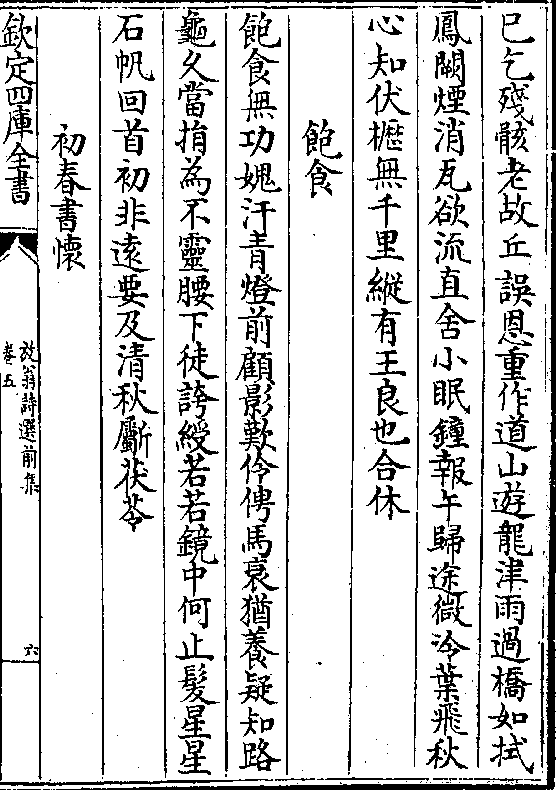 已乞殘骸老故丘誤恩重作道山遊龍津雨過橋如拭
鳳闕煙消瓦欲流直舍小眠鐘報午歸途微泠葉飛秋
心知伏櫪無千里縱有王良也合休
飽食
飽食無功媿汗青燈前顧影歎伶俜馬衰猶養疑知路
龜久當捐為不靈腰下徒誇綬若若鏡中何止髮星星
石帆回首初非逺要及清秋斸茯苓
初春書懐
欽定四庫全書
放翁詩選前集
卷五
六